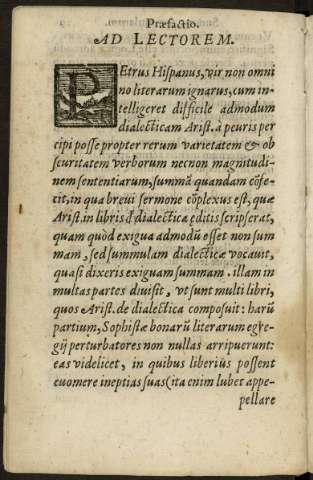 Præfactio.
AD LECTOREM.
PEtrus Hispanus, vir non omni
no literarum ignarus, cum in-
telligeret difficile admodum
dialecticam Arist. à peuris per
cipi posse propter rerum varietatem & ob
scuritatem verborum necnon magnitudi-
nem sententiarum, summã quandam cõfe-
cit, in qua breui sermone cõplexus est, quæ
Arist. in libris đ dialecticæ editis scripserat,
quam quòd exigua admodũ esset non sum
mam, sed summulam dialecticæ vocauit,
quasi dixeris exiguam summam. illam in
multas partes diuisit, vt sunt multi libri,
quos Arist. de dialectica composuit: harũ
partium, Sophistæ bonarũ literarum egre-
gij perturbatores non nullas arripuerunt:
eas videlicet, in quibus liberius possent
euomere ineptias suas (ita enim lubet appe-
pellare